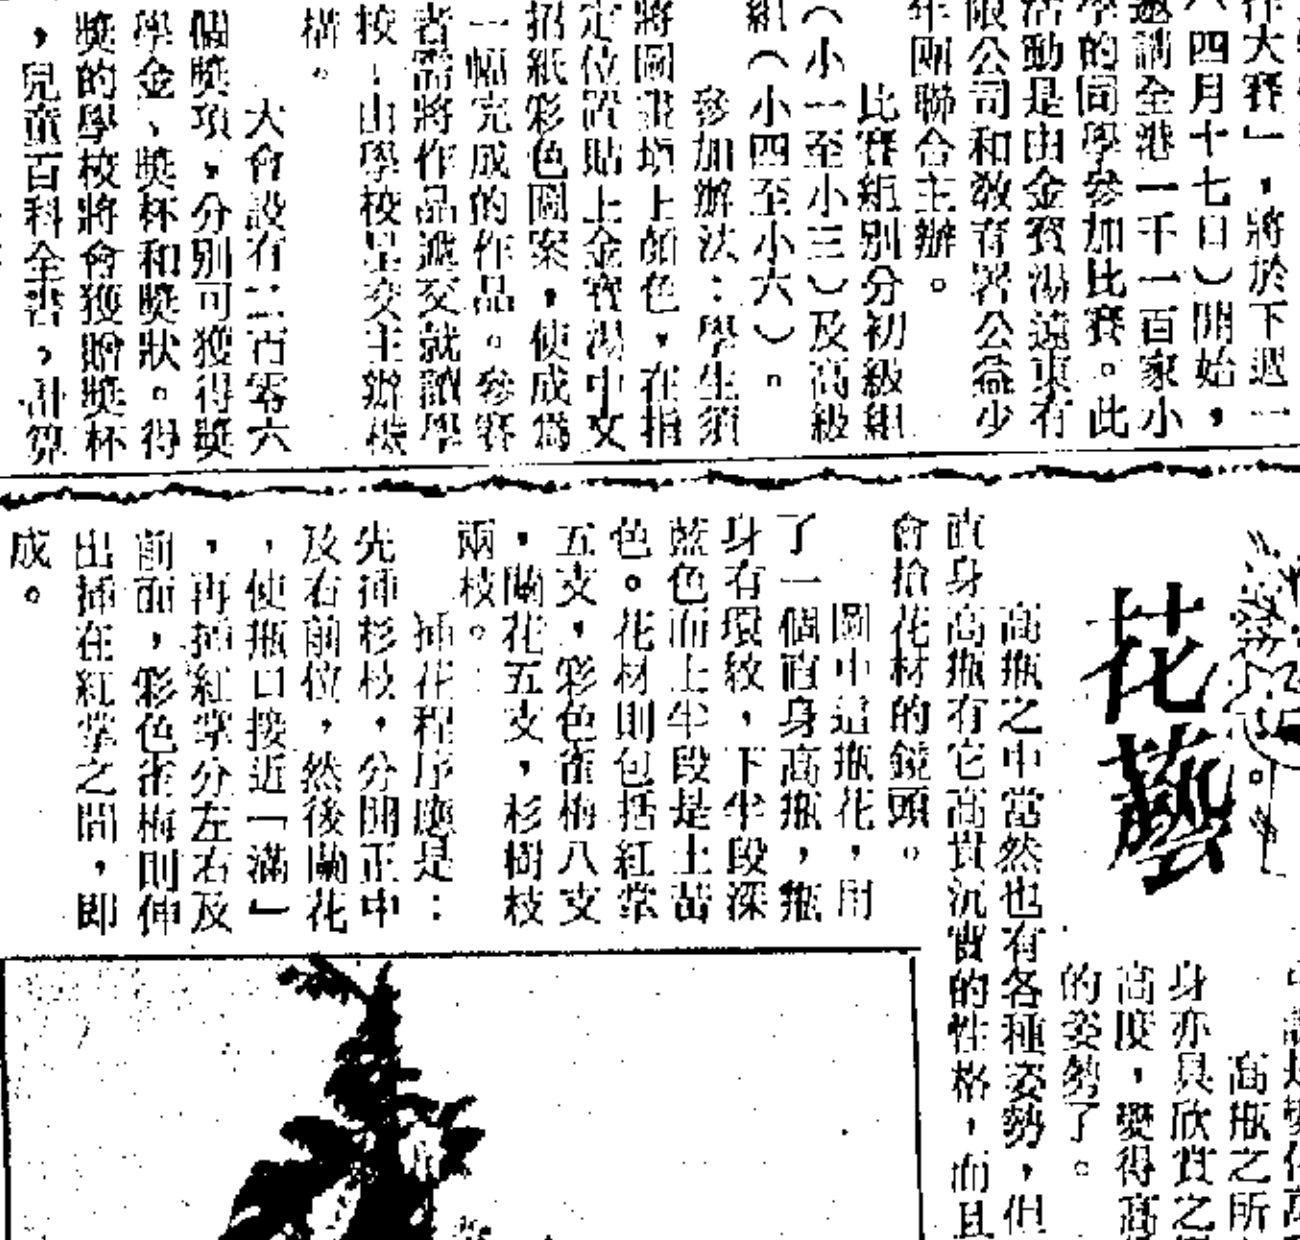 作大賽」，將於下週一
（四月十七日）開始，
邀請全港一千一百家小
學的同學參加比賽。此
活動是由金寶湯遠東有
限公司和教育署公益少
年團聯合主辦。
比賽組別分初級組
（小一至小三）及高級
組（小四至小六）。
參加辦法：學生須
將圖畫填上顏色，在指
定位置貼上金寶湯中文
招紙彩色圖案，使成為
一幅完成的作品。參賽
者需將作品遞交就讀學
校，由學校呈交主辦機
構。
大會設有二百零六
個獎項，分別可獲得獎
學金、獎杯和獎狀。得
獎的學校將會獲贈獎杯
，兒童百科全書，計算
花藝
高瓶之所
身亦具欣賞之
高度，變得高
的姿勢了。
高瓶之中當然也有各種姿勢，但
直身高瓶有它高貴沉實的性格，而且
會搶花材的鏡頭。
圖中這瓶花，用
了一個直身高瓶，瓶
身有環紋，下半段深
藍色而上半段是土黃
色。花材則包括紅掌
五支，彩色雀梅八支
，蘭花五支，杉樹枝
兩枝。
插花程序應是：
先插杉枝，分開正中
及右前位，然後蘭花
，使瓶口接近「滿」
，再插紅掌分左右及
前面，彩色雀梅則伸
出插在紅掌之間，即
成。